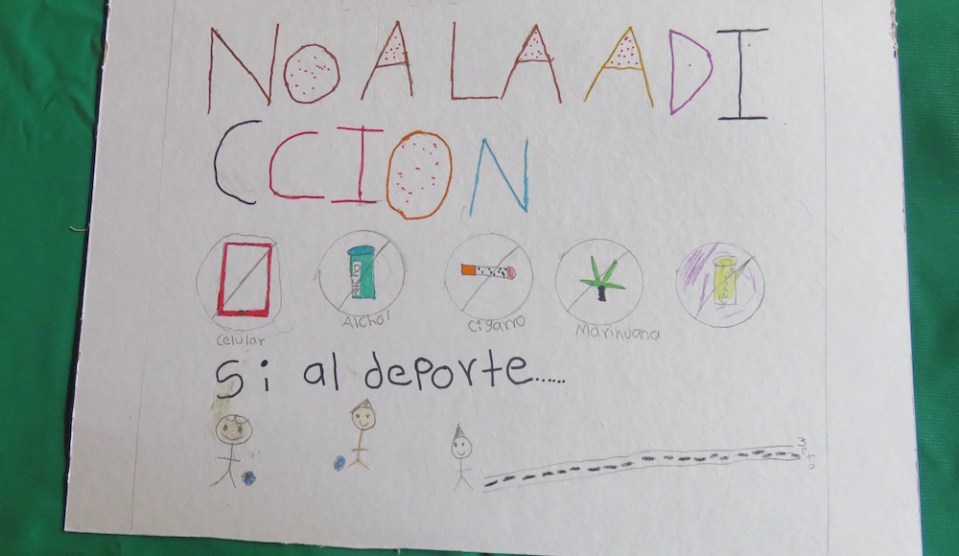 NO A LA ADI
CCION
Alchol
celular
Alchol
Cigarro
Marihuana
Si al deporte......